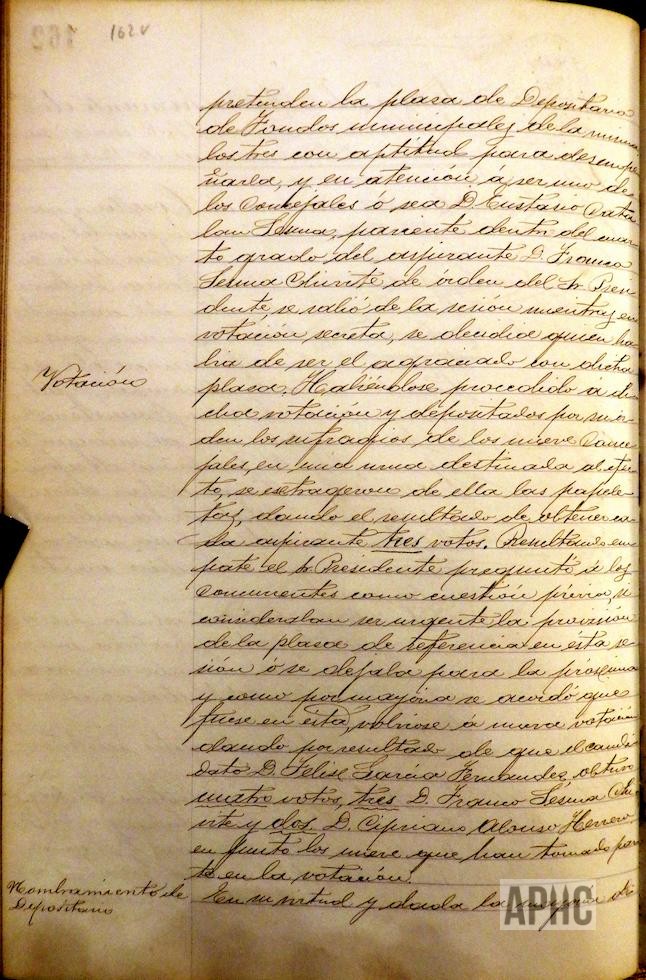 162v
pretenden la plasa de Depositario
de Fondos municipales de la misma
los tres con aptitud para desempe
ñarla, y en atencion a ser uno de
los Concejales ó sea D. Eustasio Cata
lan Lesma, pariente dentro del cuar
to grado del aspirante D. Franco
Lesma Chivite de órden del Sr. Presi
dente se salió de la sesión mientras en
votación secreta, se decidia quien ha
bia de ser el agraciado con dicha
Votación
plasa. Habiendose procedido á di
cha votación y depositados por su ór-
den los sufragios de los nueve Conce
jales, en una urna destinada al efec
to, se estrageron de ella las papele
tas, dando el resultado de obtener ca
da aspirante tres votos. Resultando em
pate el Sr. Presidente preguntó á los
concurrentes como cuestión prévia, si
consideraban ser urgente la provisión
de la plasa de referencia en esta se
sión ó se dejaba para la prósima
y como por mayoria se acordó que
fuese en ésta, volviose a nueva votación
dando por resultado de que el candi
dato D. Felise Garcia Fernandez, obtuvo
cuatro votos, tres D. Franco Lesma Chi
vite y dos D. Cipriano Alonso Herrero
en junto los nueve que han tomado par
te en la votación.
Nombramiento de
Depositario
En su virtud y dada la mayoria de
APHC